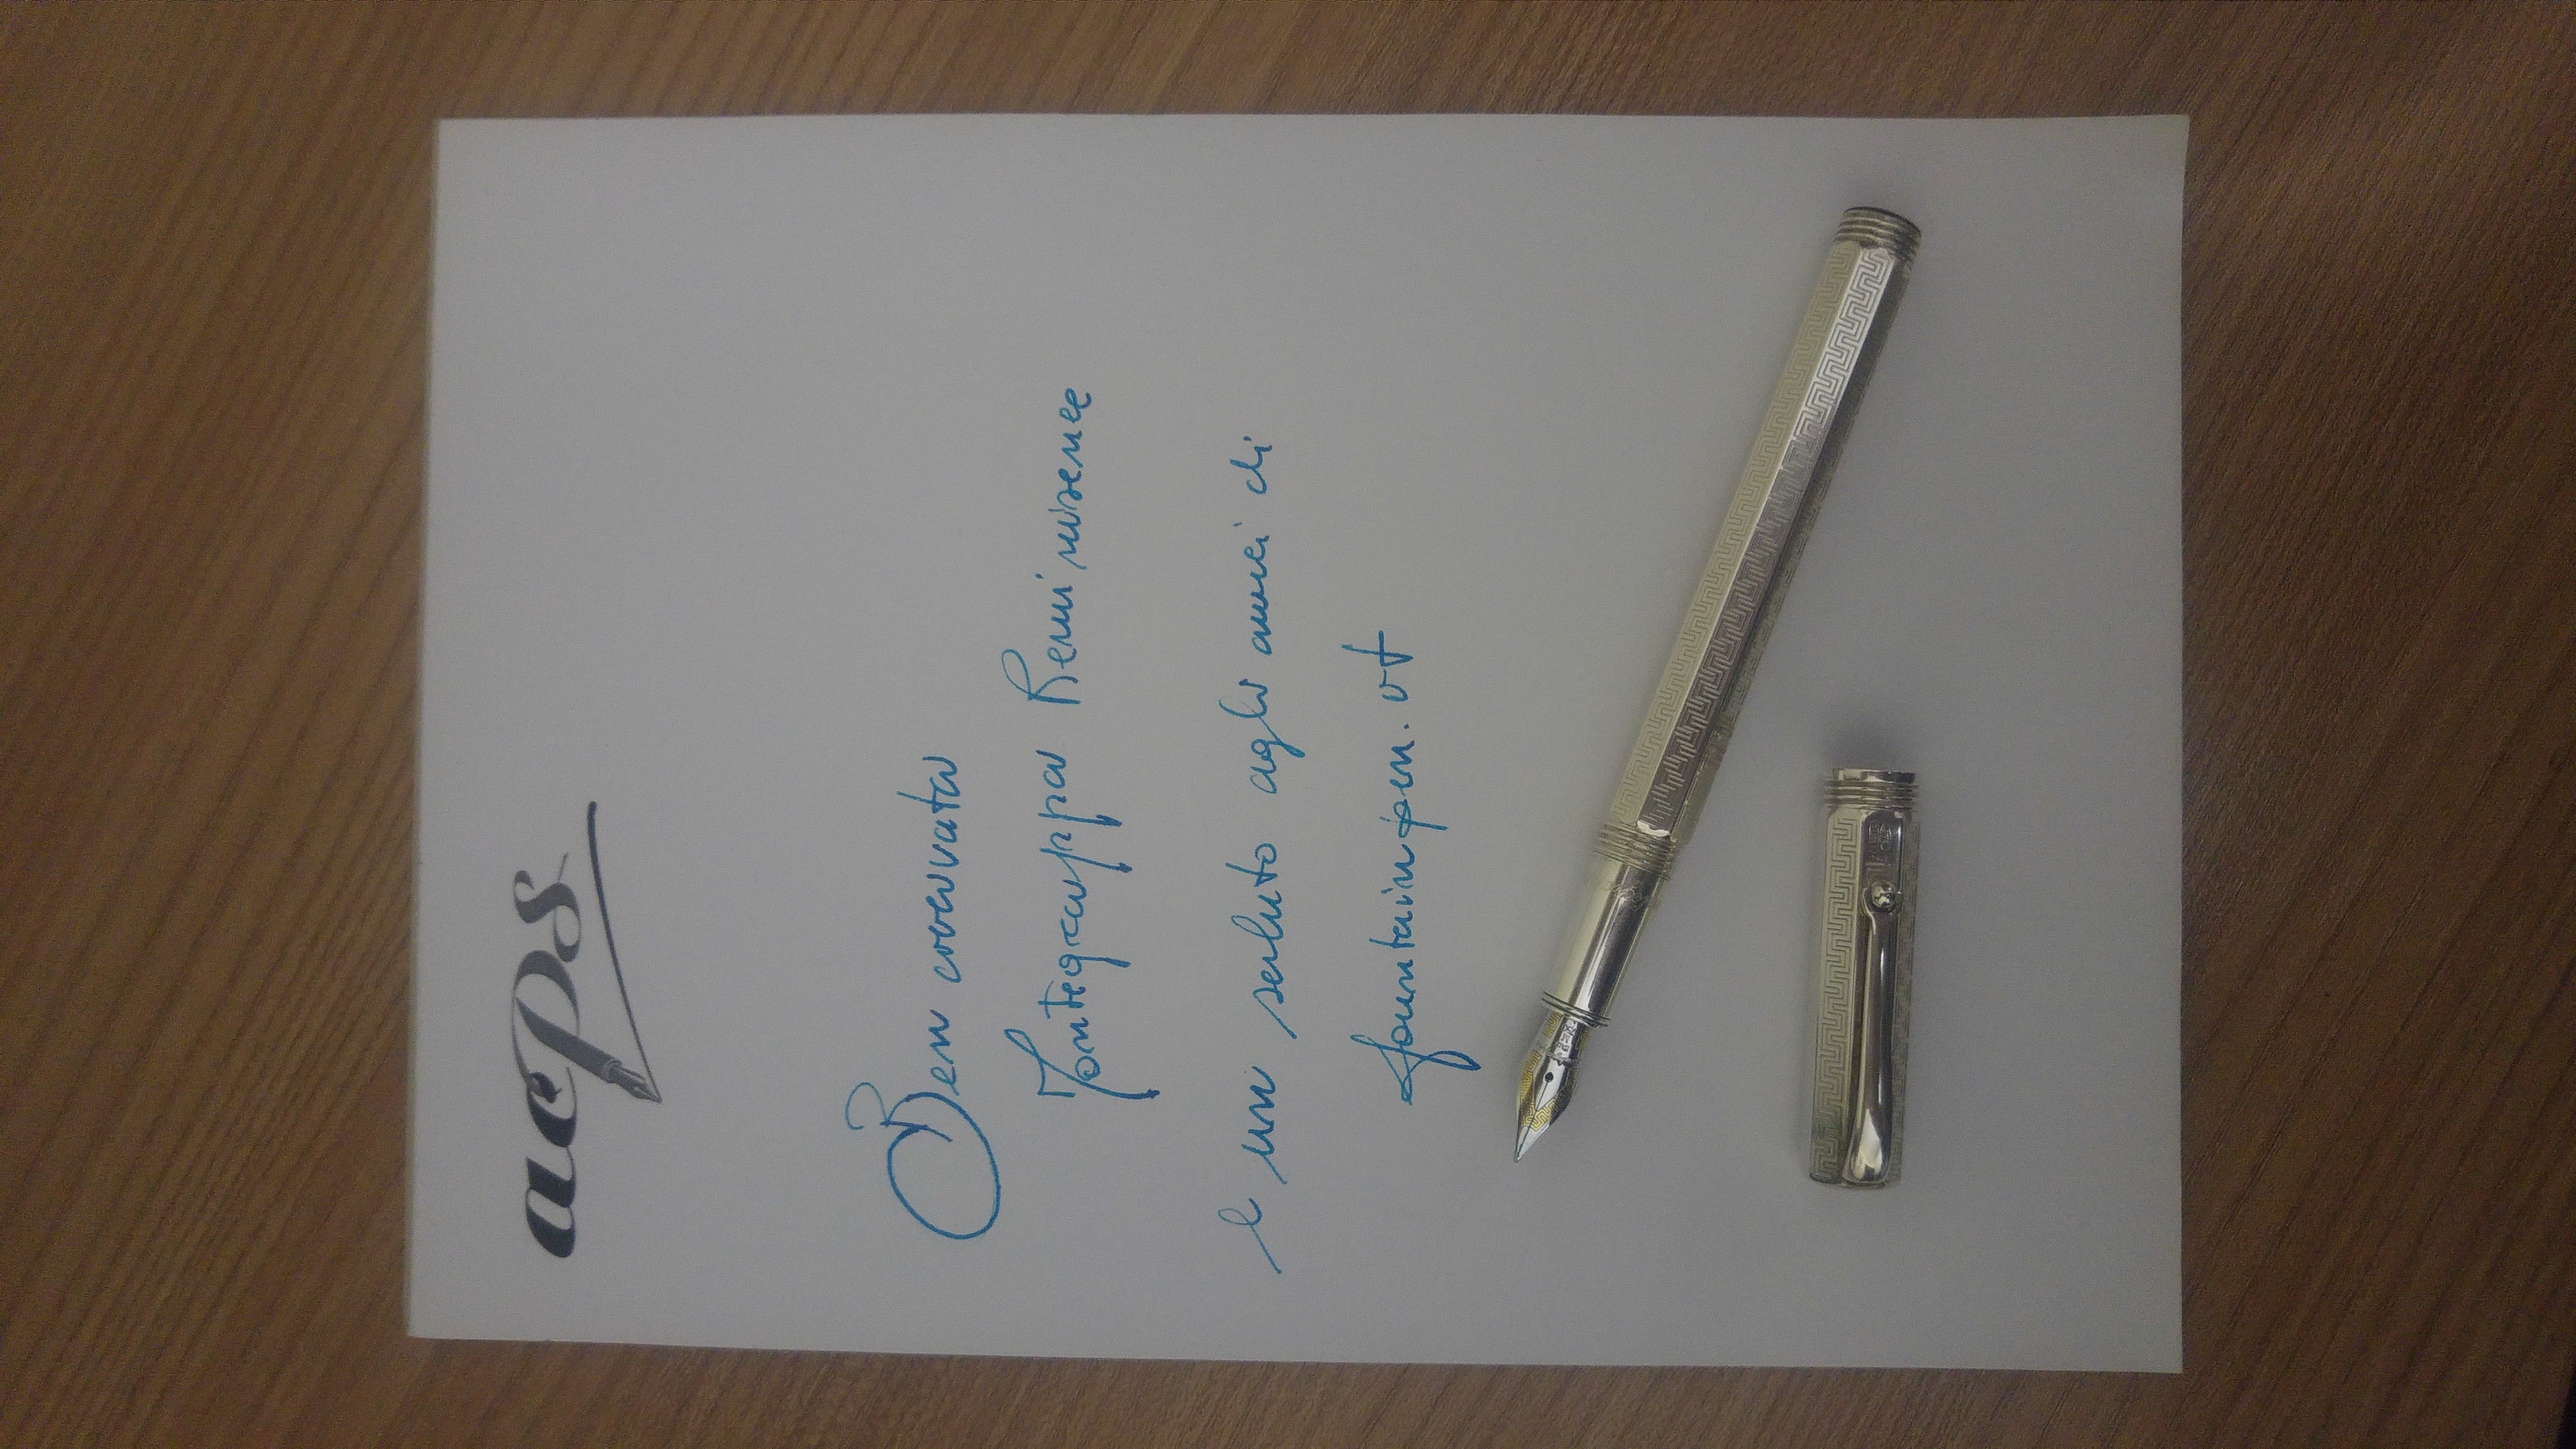 acps
Ben
Montegrappa Reminiscence
e un saluto agli amici di
fountainpen.it